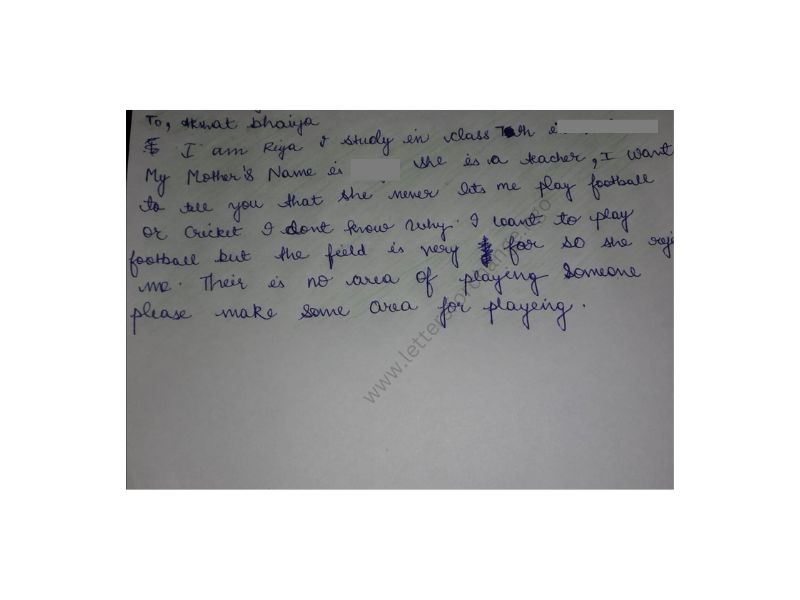 To, bhaiya
I am Riya I study in class 7th
My Mother's Name is she is a teacher, I want
to tell you that she never lets me play football
or cricket I dont know why. I want to play
football but the field is very far so she reje
me. Their is no area of playeing Someone
please make some area for playeing.